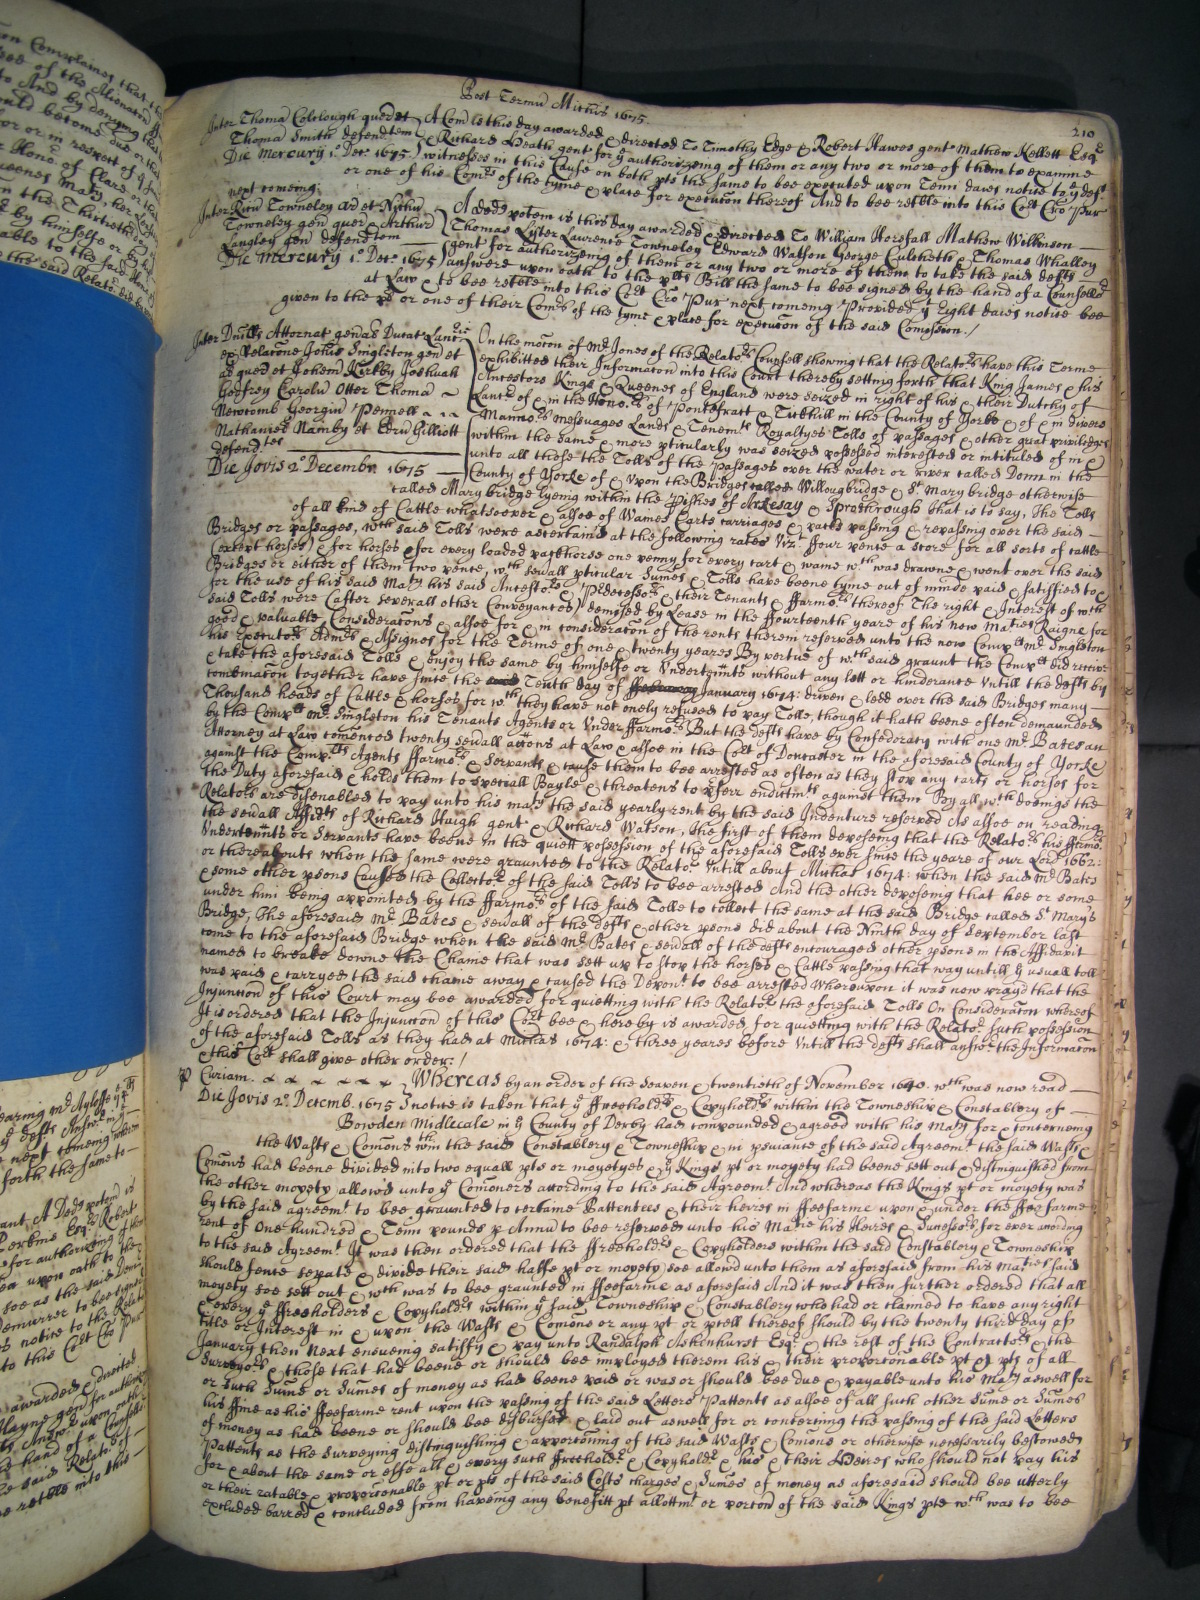 Post Termū Mithis 1675.
210
Inter Thomā Colclough quer et
Thomā Smith defendtem
Die Mercurij 1o. Decr. 1675.
A Com is this day awarded & directed To Timothy Edge & Robert Hawes gent Mathew Kellett Esqr
& Richard Heath gent for ye authorizeing of them or any two or more of them to examine
witnesses in this Cause on both pts the same to bee executed upon Tenn daies notice to ye deft
or one of his Comrs of the tyme & place for execucon thereof And to bee retble into this Cort Cro Pur
next comeing.
Inter Ricū Towneley ar et Nichū
Towneley gen quer Arthur
Langley gen defendtem
Die Mercurij 1o. Decr. 1675
A dedᵽotem is this day awarded & directed To William Horsfall Mathew Wilkinson
Thomas Lyster Lawrence Towneley Edward Watson George Culcheth & Thomas Whalley
gent for authorizeing of them or any two or more of them to take the said defts
answere upon oath to the plts Bill the same to bee signed by the hand of a Counsellor
at Law & to bee retble into this Cort Cro Pur next comeing Provided yt Eight daies notice bee
given to the plt or one of their Comrs of the tyme & place for execucon of the said Comission./
Inter Attornat genal Ducat Lanc
ex Relatone Johis Singleton gen et
al quer et Johem Kirkby Joshuah
Godfrey Carolu Otter Thoma
Newcomb Georgiu Pennell
Nathaniel Namby et Edru Gilliott
defendtes
Die Jovis 2o Decembr. 1675
On the mocon of Mr Jones of the Relators Counsell shewing that the Relators have this Terme
exhibitted their Informacon into this Court thereby setting forth that King James & his
Ancestors Kings & Queenes of England were seized in right of his & their Dutchy of
Lancr of & in the Honors of Pontefratt & Tickhill in the County of Yorke & of & in divers
Mannors Messuages Lands & Tenemts Royaltyes Tolls of passages & other great priviledges
within the same & more pticularly was seized possessed interested or intituled of in &
unto all those the Tolls of the Passages over the water or river called Donn in the
County of Yorke of & upon the Bridges called Willoughbridge & St Mary bridge otherwise
called Marybridge lyeing within the Pishes of Arksay & Sprosbrough that is to say, The Tolls
of all kind of Cattle whatsoever & alsoe of Waines Carts carriages & packs passing & repassing over the said
Bridges or passages, wch said Tolls were ascertained at the following rates Vizt. ffour pence a score for all sorts of cattle
(except horses) & for horses & for every loaded packhorse one penny for every cart & waine wch was drawne & went over the said
Bridges or either of them two pence, wch sevall pticular Sumes & Tolls have beene tyme out of minde paid & satisfied to &
for the use of his said Maty his said Ancestors & Pdecessors & their Tenants & ffarmors thereof The right & Interest of wch
said Tolls were (after severall other Conveyances) demised by Lease in the ffourteenth yeare of his now Maties Raigne for
good & valuable Consideracons & alsoe for & in consideracon of the rents therein reserved unto the now Complt Mr Singleton
his Executors Admrs & Assignes for the Terme of one & twenty yeares By vertue of wch said graunt the Complt did receive
& take the aforesaid Tolls & enjoy the same by himselfe or Undertennts without any lett or hinderance Untill the defts by
combinacon together have since the Tenth day of January 1674: driven & ledd over the said Bridges many
Thousand heads of Cattle & horses for wch they have not onely refused to pay Tolle, though it hath beene often demaunded
by the Complt Mr Singleton his Tenants Agents or Underffarmors But the defts have by Confederacy with one Mr Bates an
Attorney at Law comenced twenty sevall accons at Law & alsoe in the Cort of Doncaster in the aforesaid County of Yorke
against the Complts Agents ffarmors & servants & cause them to bee arrested as often as they stop any carts or horses for
the Duty aforesaid & hold them to speciall Bayle & threatens to pferr endictmts against them By all wch doeings the
Relators are disenabled to pay unto his Maty the said yearly rent by the said Indenture reserved As alsoe on reading
the sevall Affidts of Richard Haigh gent & Richard Watson, The first of them deposeing that the Relators his ffarmors
Undertennts or Servants have beene in the quiett possession of the aforesaid Tolls ever since the yeare of our Lord 1662:
or thereabouts when the same were graunted to the Relator Untill about Michas 1674: when the said Mr Bates
& some other psons Caused the Collectors of the said Tolls to bee arrested And the other deposeing that hee or some
under him being appointed by the ffarmors of the said Tolle to collect the same at the said Bridge called St Mary's
Bridge, The aforesaid Mr Bates & sevall of the defts & other psons did about the Ninth day of September last
come to the aforesaid Bridge when the said Mr Bates & sevall of the defts encouraged other psons in the Affidavit
named to breake downe the Chaine that was sett up to stop the horses & Cattle passing that way untill ye usuall toll
was paid & carryed the said chaine away & caused the Depont to bee arrested Whereupon it was now prayd that the
Injunccon of this Court may bee awarded for quietting with the Relators the aforesaid Tolls On Consideracon whereof
It is ordered that the Injunccon of this Cort bee & hereby is awarded for quietting with the Relators such possession
of the aforesaid Tolls as they had at Michas 1674: & three yeares before Untill the defts shall answr the Informacon
& this Cort shall give other order:/
P Curiam.
Die Jovis 2o. Decemb. 1675
Whereas by an order of the seaven & twentieth of November 1640. wch was now read
notice is taken that ye ffreeholdrs & Copyholdrs within the Towneship & Constablery of
Bowden Midlecale in ye County of Derby had compounded & agreed with his Maty for & concerneing
the Wasts & Comons wthin the said Constablery & Towneship & in psuiance of the said Agreemt the said Wasts &
Comons had beene divided into two equall pts or moyetyes & ye Kings pt or moyety had beene sett out & distinguished from
the other moyety allowed unto ye Comoners according to the said Agreemt And whereas the Kings pt or moyety was
by the said agreemt to bee graunted to certaine Pattentees & their heires in ffeefarme upon & under the ffee farme
rent of One hundred & Tenn pounds p Annu to bee reserved unto his Matie his Heires & Successors for ever according
to the said Agreemt It was then ordered that the ffreeholdrs & Copyholders within the said Constablery & Towneship
should fence sepate & divide their said halfe pt or moyety soe allowd unto them as aforesaid from his Maties said
moyety soe sett out & wch was to bee graunted in ffeefarme as aforesaid And it was then further ordered that all
& every ye ffreeholders & Copyholdrs within ye said Towneship & Constablery who had or claimed to have any right
title or Interest in & upon the Wasts & Comons or any pt or pcell thereof should by the twenty third day of
January then Next ensueing satisfy & pay unto Randolph Ashenhurst Esqr & the rest of the Contractors & the
Surveyors & those that had beene or should bee imployed therein his & their proporconable pt & pts of all
or such Sume or Sumes of money as had beene paid or was or should bee due & payable unto his Maty aswell for
his ffine as his ffeefarme rent upon the passing of the said Letters Pattents as alsoe of all such other Sume or Sumes
of money as had beene or should bee disbursed & laid out aswell for or concerning the passing of the said Letters
Pattents as the Surveying distinguishing & apporconing of the said Wasts & Comons or otherwise necessarily bestowed
for & about the same or else all & every such ffreeholdr & Copyholdr & his & their Heires who should not pay his
or their ratable & proporconable pt or pts of the said Costs charges & Sumes of money as aforesaid should bee utterly
excluded barred & concluded from haveing any benefitt pt allottmt or porcon of the said Kings pte wch was to bee